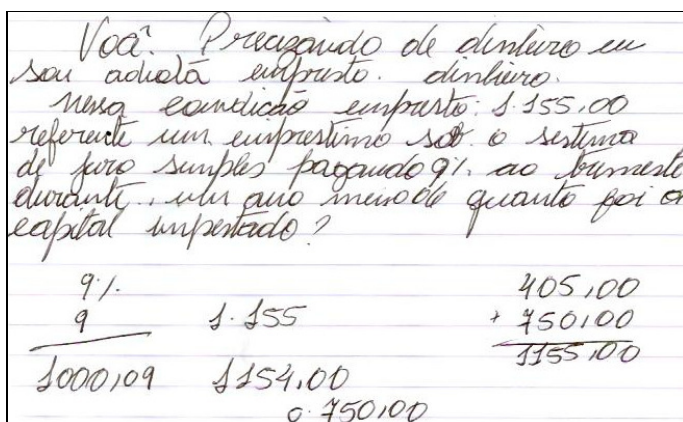 Você. Precizando de dinheiro eu
sou adiotá empresto. dinheiro.
nessa condicão empresto: 1.155,00
referente um emprestimo sob o sistema
de juro simples pagando 9% ao trimeste
durante.. um ano meio de quanto foi o
capital impestado?
9%.
9
1000,09
1.155
1154,00
0.750,00
405,00
+ 750,00
1155,00